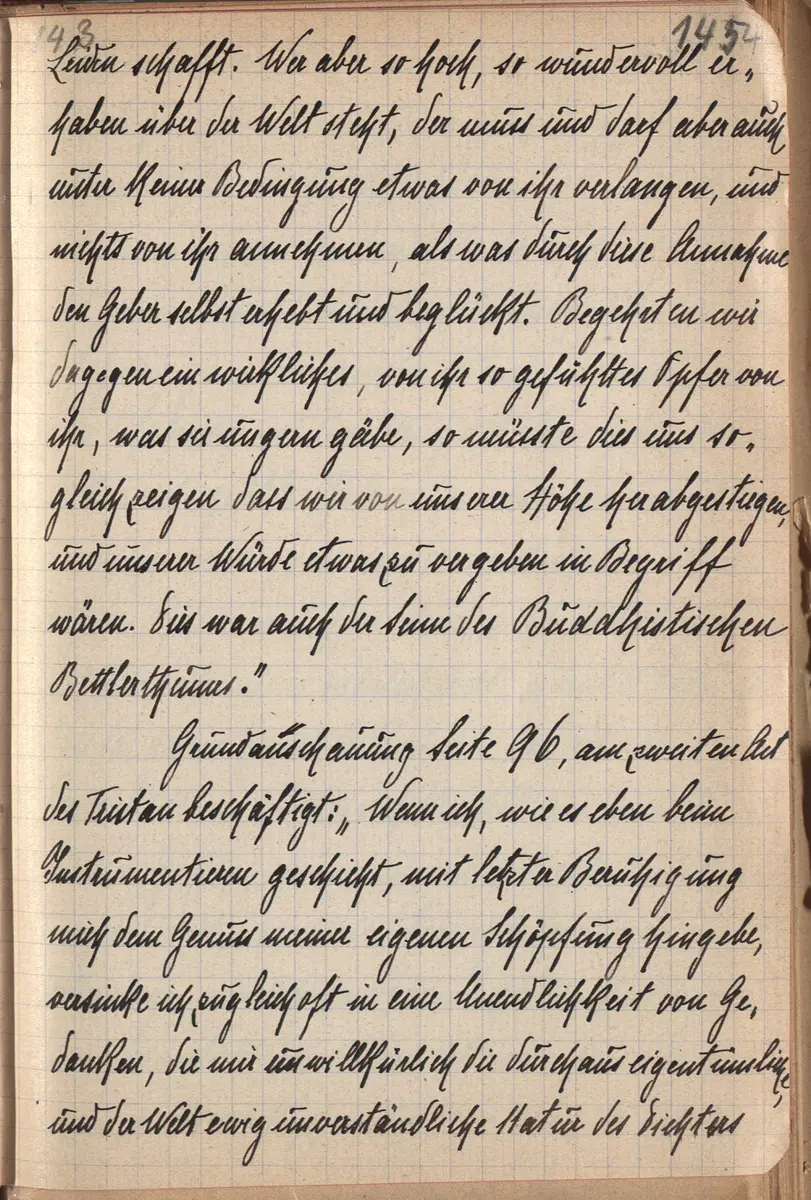 143 1454
Leiden schafft. Wer aber so hoch, so wundervoll er„
haben über der Welt steht, der muss und darf aber auch
unter keiner Bedingung etwas von ihr verlangen, und
nichts von ihr annehmen, als was durch diese Annahme
den Geber selbst erhebt und beglückt. Begehrten wir
dagegen ein wirkliches, von ihr so gefühltes Opfer von
ihr, was sie ungern gäbe, so müsste dies uns so„
gleich zeigen dass wir von unserer Höhe herabgestiegen,
und unserer Würde etwas zu vergeben in Begriff
wären. Dies war auch der Sinn des Buddhistischen
Bettlerthums."
Grundanschauung Seite 96, am zweiten Act
des Tristan beschäftigt: „Wenn ich, wie es eben beim
Instrumentieren geschieht, mit letzter Beruhigung
mich dem Genuss meiner eigenen Schöpfung hingebe,
versinke ich zugleich oft in eine Unendlichkeit von Ge„
danken, die mir unwillkürlich die durchaus eigentümliche,
und der Welt ewig unverständliche Natur des Dichters